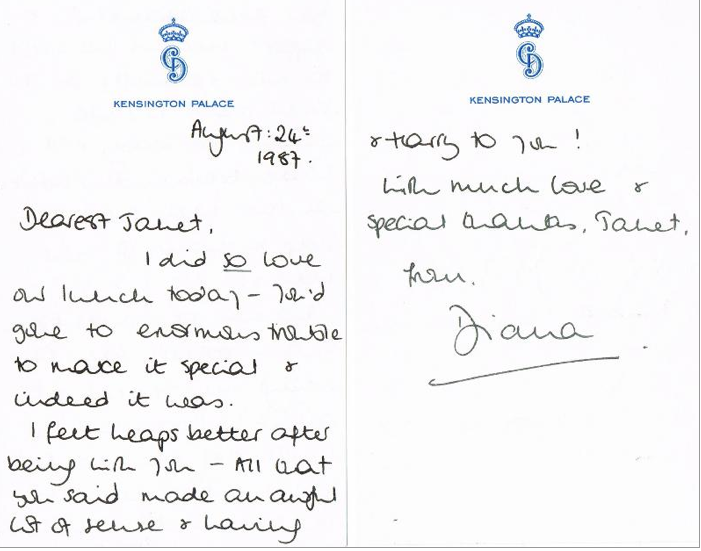 KENSINGTON PALACE
August: 24th
1987.
Dearest Janet,
I did so love
our lunch today – You'd
gone to enormous trouble
to make it special &
indeed it was.
I felt heaps better after
being with you – All that
you said made an awful
lot of sense & having
KENSINGTON PALACE
to you!
With much love &
special thanks, Janet,
from.
Diana